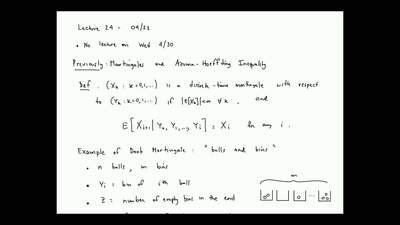 Lecture 24 - 04/23
• No lecture on Wed 4/30
Previously: Martingales and Azuma-Hoeffding Inequality
Def. (Xk : k=0,1,...) is a discrete-time martingale with respect
to (Yk : k=0,1,...) if |E[Xk]|<∞ ∀ k, and
E[Xi+1 | Y0, Y1, ..., Yi] = Xi for any i.
Example of Doob Martingale: "balls and bins"
• n balls, m bins
m
• Yi = bin of ith ball
• Z = number of empty bins in the end